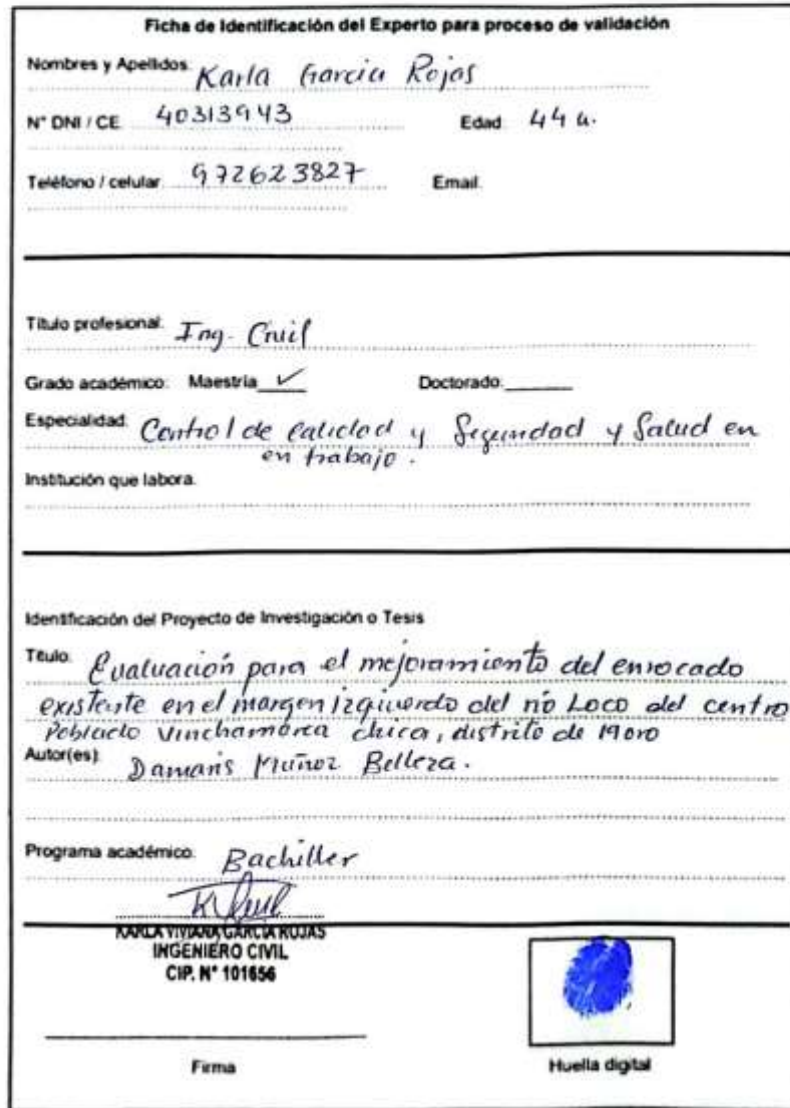 Ficha de Identificación del Experto para proceso de validación
Nombres y Apellidos: Karla Garcia Rojas
N° DNI / CE 40313943 Edad: 44 a.
Teléfono / celular: 972623827 Email:
Título profesional: Ing. Civil
Grado académico: Maestría ✓ Doctorado:
Especialidad: Control de calidad y Seguridad y Salud en
en trabajo.
Institución que labora:
Identificación del Proyecto de Investigación o Tesis
Título: Evaluación para el mejoramiento del enrocado
existente en el margen izquierdo del río Loco del centro
Poblado Vinchamarca chica, distrito de Moro
Autor(es): Damaris Muñoz Belleza.
Programa académico: Bachiller
KARLA VIVIANA GARCIA ROJAS
INGENIERO CIVIL
CIP. N° 101656
Firma Huella digital